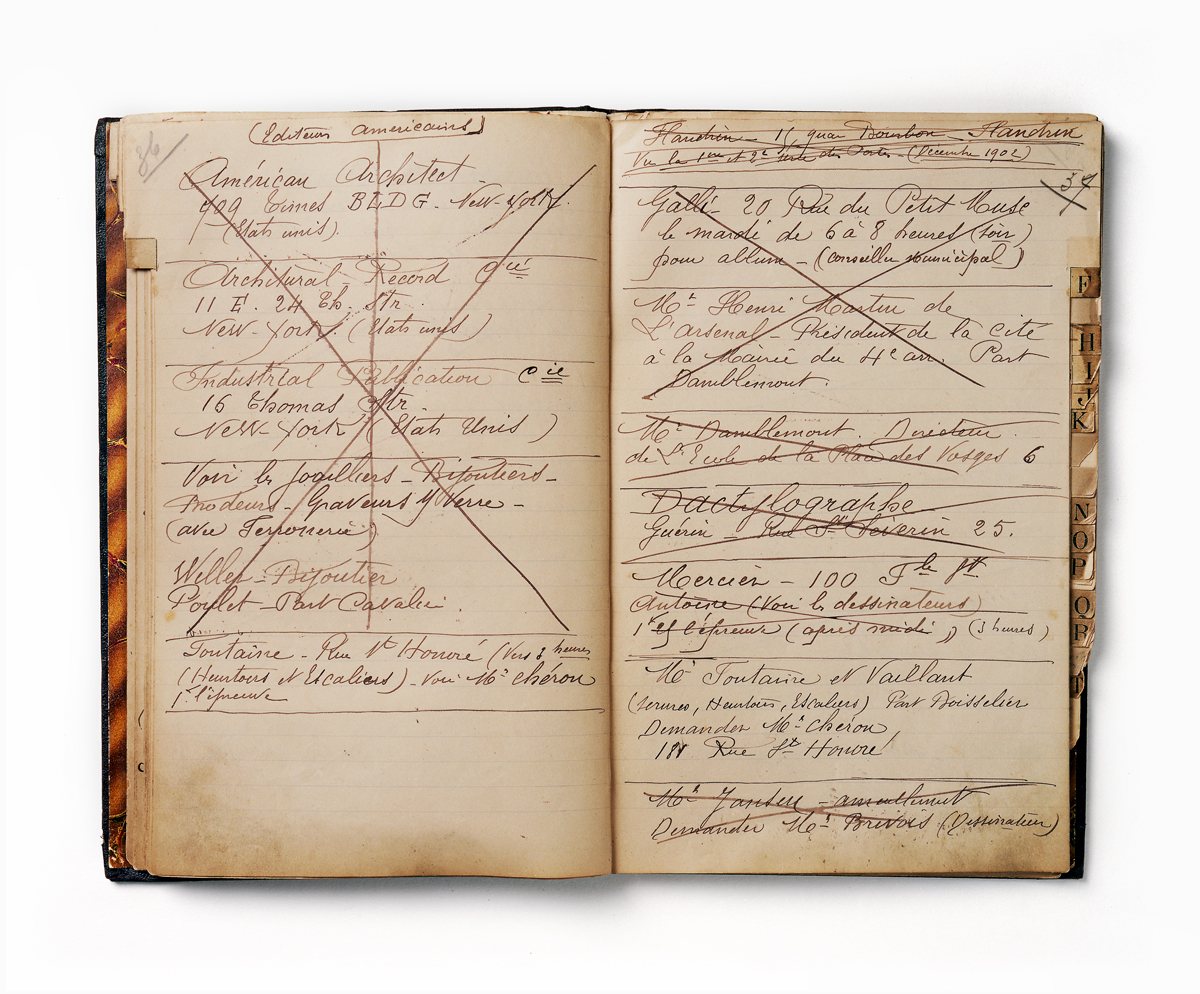 36
(Editeurs américains)
Américan Architect
709 Times BLDG - New-York.
(Etats unis).
Architural Record Cié
11 E. 24 th. Str.
New-York (Etats unis)
Industrial Publication Cie
16 Thomas Str.
New-York (Etats Unis)
Voir les Joailliers - Bijoutiers -
Modeurs - Graveurs s/ Verre -
(avec Ferronerie)
Weller - Bijoutier
Poulet - Part Cavalier.
Fontaine - Rue St Honoré (Vers 3 heures
(Heurtoirs et Escaliers) - Voir Mr Chéron
1r l'épreuve
Flandrin - 15 quai Bourbon - Flandrin
Vu la 1ere et 2e Série des Portes - (Décembre 1902)
37
Galli - 20 Rue du Petit Muse
le mardi de 6 à 8 heures (soir)
pour album - (conseiller municipal)
Mr Henri Martin de
L'arsenal - Président de la cité
à la Mairie du 4e arr. Part
Damblemont.
Mr Damblemont. Directeur
de L'Ecole de la Place des Vosges 6
Dactylographe
Guérin - Rue St Séverin 25.
Mercier - 100 Fb St
Antoine (Voir les dessinateurs)
l'épreuve (après midi) (3 heures)
Mr Fontaine et Vaillant
(Serrures, Heurtoirs, Escaliers) Part Boisselier
Demander Mr Chéron
181 Rue St Honoré
Mr Jansen - ameublement
Demander Mr Brevois (Dessinateur)
F
H
I
J
K
N
O
P
Q
R
T